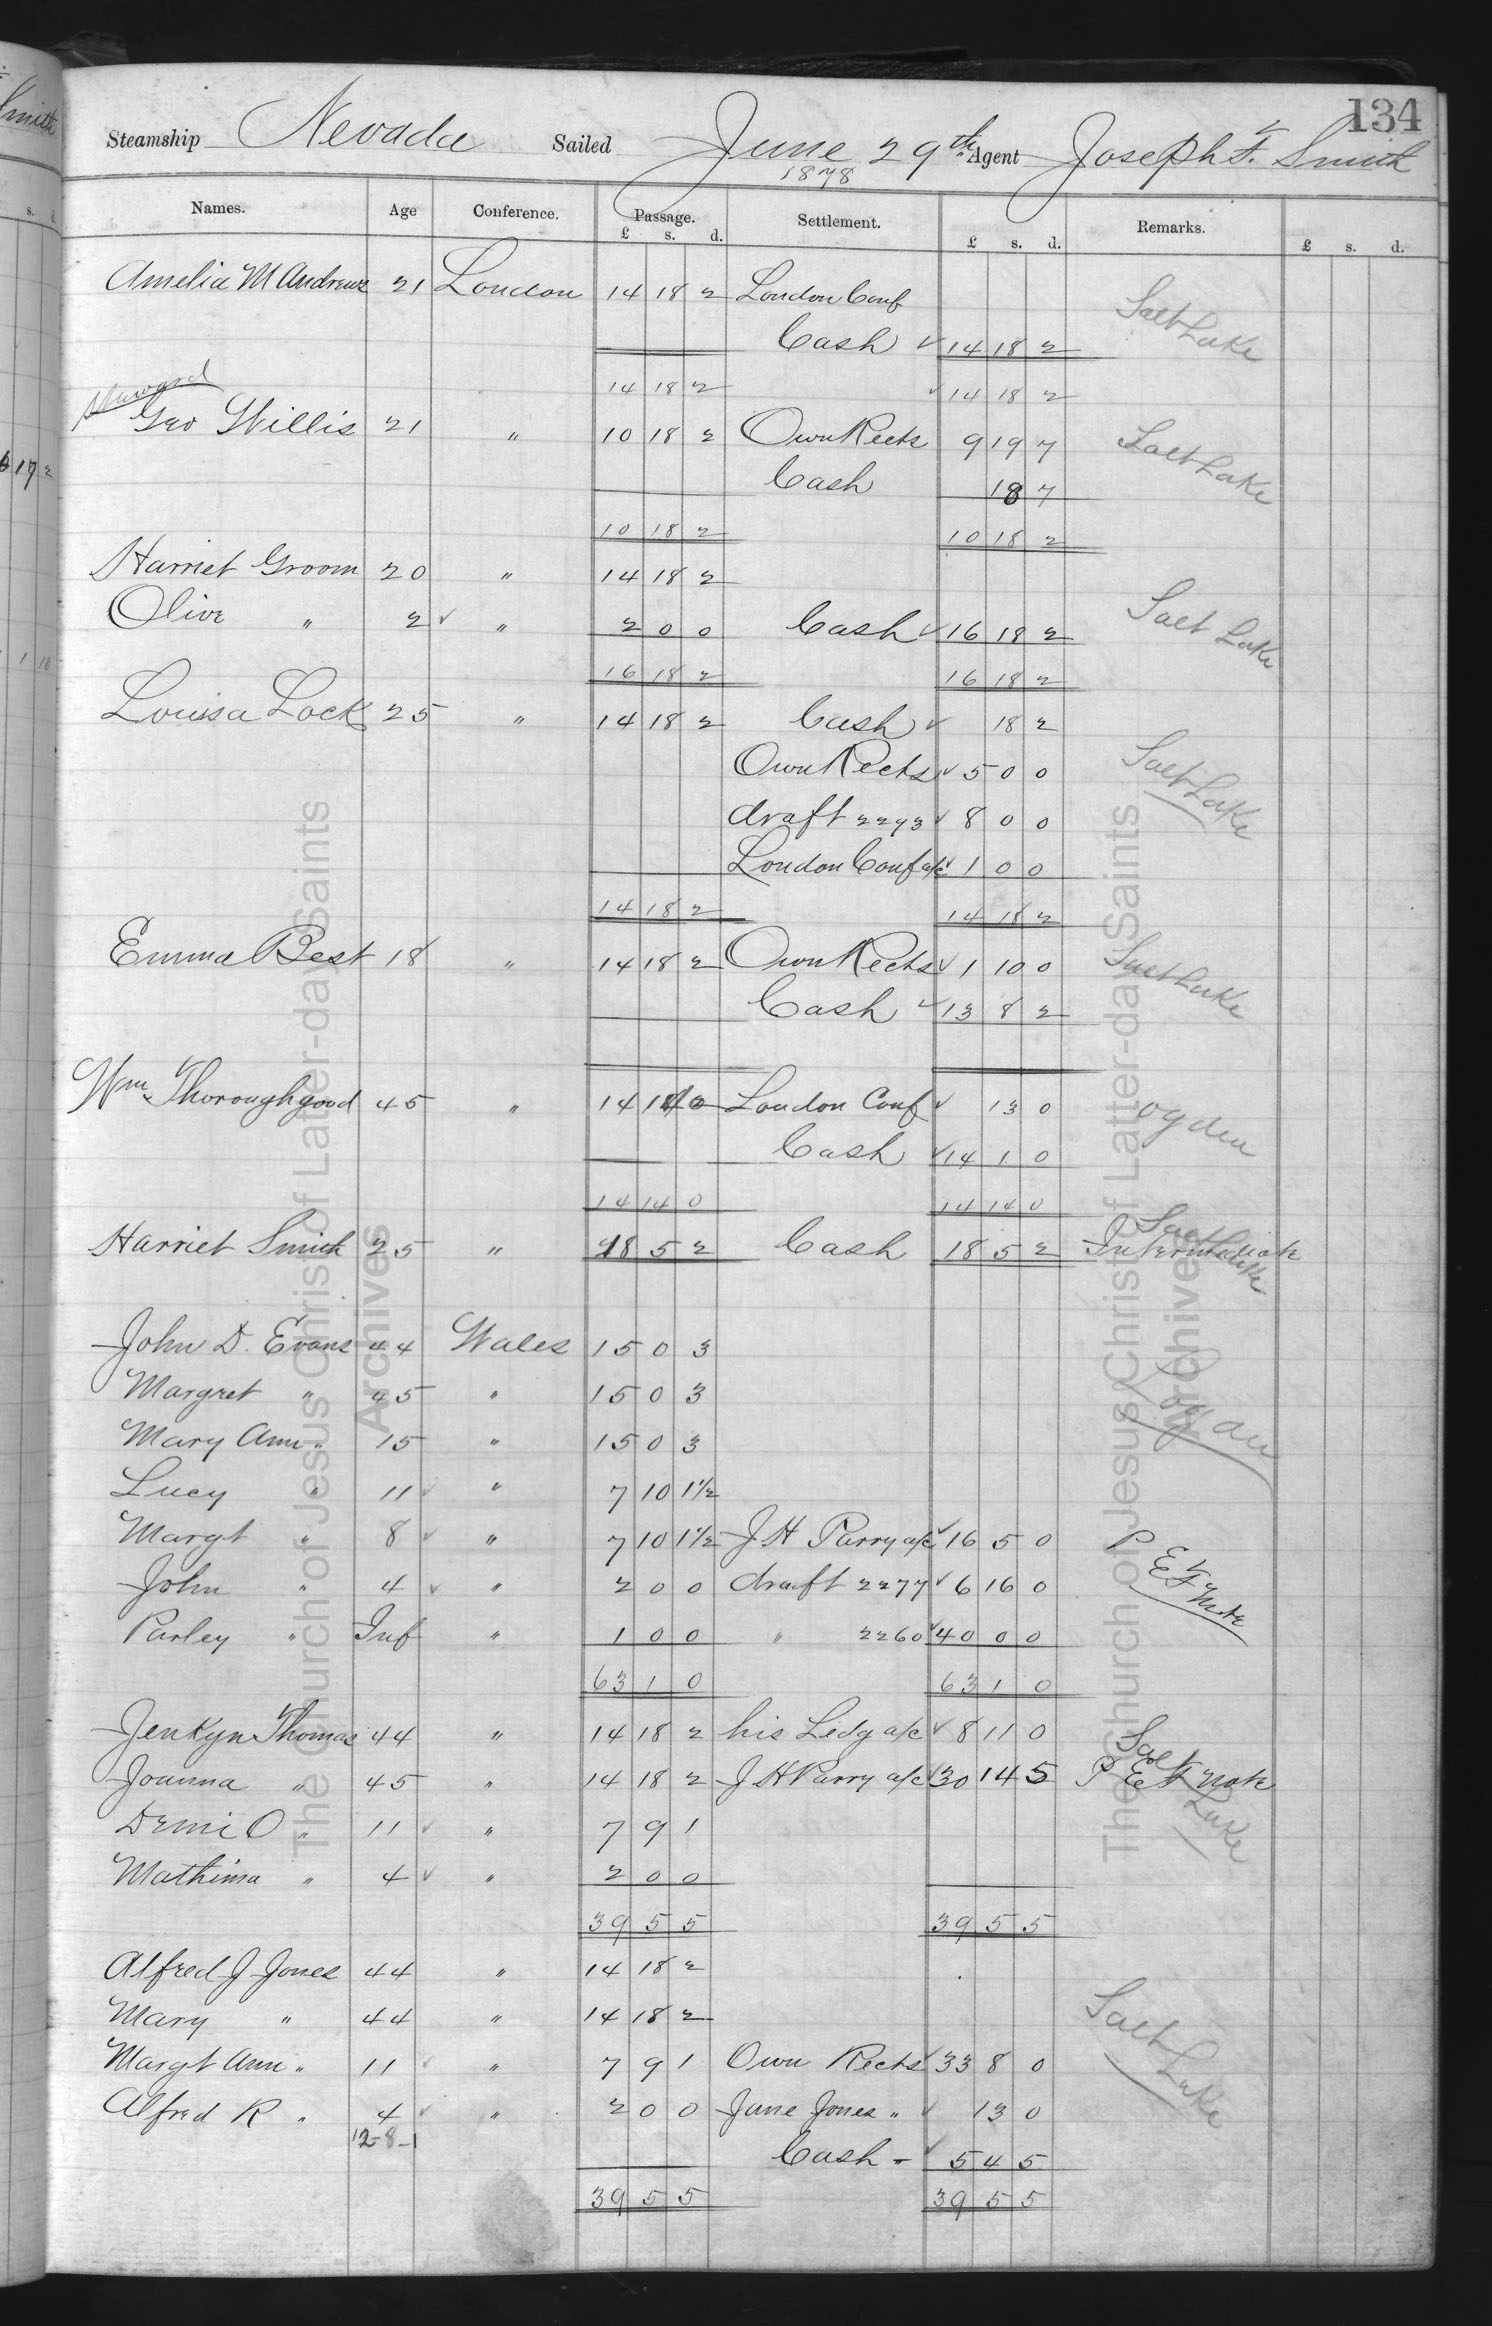 134
Steamship Nevada Sailed June 29th 1878 Agent Joseph F. Smith
Names. Age Conference. Passage. £ s. d. Settlement. £ s. d. Remarks. £ s. d.
Amelia M Andrews 21 London 14 18 2 London Conf Salt Lake
Cash 14 18 2
14 18 2 14 18 2
Steward
Geo Willis 21 " 10 18 2 Own Rects 9 19 7 Salt Lake
Cash 18 7
10 18 2 10 18 2
Harriet Groom 20 " 14 18 2
Olive " 2 " 2 0 0 Cash 16 18 2 Salt Lake
16 18 2 16 18 2
Louisa Lock 25 " 14 18 2 Cash 18 2
Own Rects 5 0 0 Salt Lake
draft 2293 8 0 0
London Conf a/c 1 0 0
14 18 2 14 18 2
Emma Best 18 " 14 18 2 Own Rects 1 10 0 Salt Lake
Cash 13 8 2
Wm Thoroughgood 45 " 14 14 0 London Conf 13 0 Ogden
Cash 14 1 0
14 14 0 14 14 0
Harriet Smith 25 " 18 5 2 Cash 18 5 2 Intermediate Salt Lake
John D. Evans 44 Wales 15 0 3
Margret " 45 " 15 0 3
Mary Ann " 15 " 15 0 3 Logan
Lucy " 11 " 7 10 1½
Margt " 8 " 7 10 1½ J H Parry a/c 16 5 0
John " 4 " 2 0 0 draft 2277 6 16 0 P E F Note
Parley " Inf " 1 0 0 " 2260 40 0 0
63 1 0 63 1 0
Jenkyn Thomas 44 " 14 18 2 his Ledg a/c 8 11 0 Salt Lake
Joanna " 45 " 14 18 2 J H Parry a/c 30 14 5 P E F Note
Demi O " 11 " 7 9 1
Mathima " 4 " 2 0 0
39 5 5 39 5 5
Alfred J Jones 44 " 14 18 2
Mary " 44 " 14 18 2 Salt Lake
Margt Ann " 11 " 7 9 1 Own Rects 33 8 0
Alfred R " 4 " 2 0 0 Jane Jones " 13 0
12-8-1 Cash " 5 4 5
39 5 5 39 5 5
The Church of Jesus Christ of Latter-day Saints
Archives
The Church of Jesus Christ of Latter-day Saints
Archives